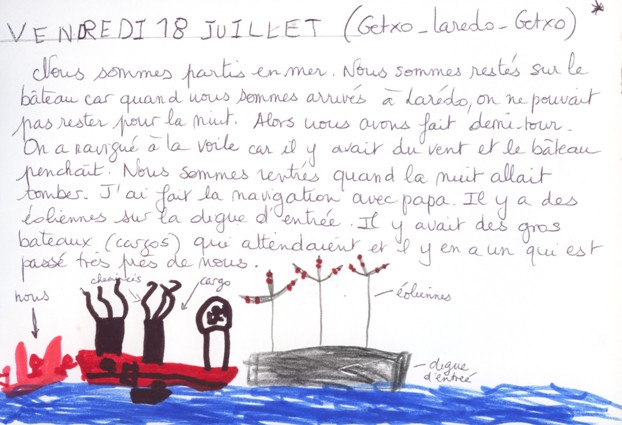 VENDREDI 18 JUILLET (Getxo_Laredo_Getxo) *
Nous sommes partis en mer. Nous sommes restés sur le
bâteau car quand nous sommes arrivés à Larédo, on ne pouvait
pas rester pour la nuit. Alors nous avons fait demi-tour.
On a navigué à la voile car il y avait du vent et le bâteau
penchait. Nous sommes rentrés quand la nuit allait
tomber. J'ai fait la navigation avec papa. Il y a des
éoliennes sur la digue d'entrée. Il y avait des gros
bateaux (cargos) qui attendaient et il y en a un qui est
passé très près de nous.
nous
cheminées
cargo
éoliennes
digue
d'entrée